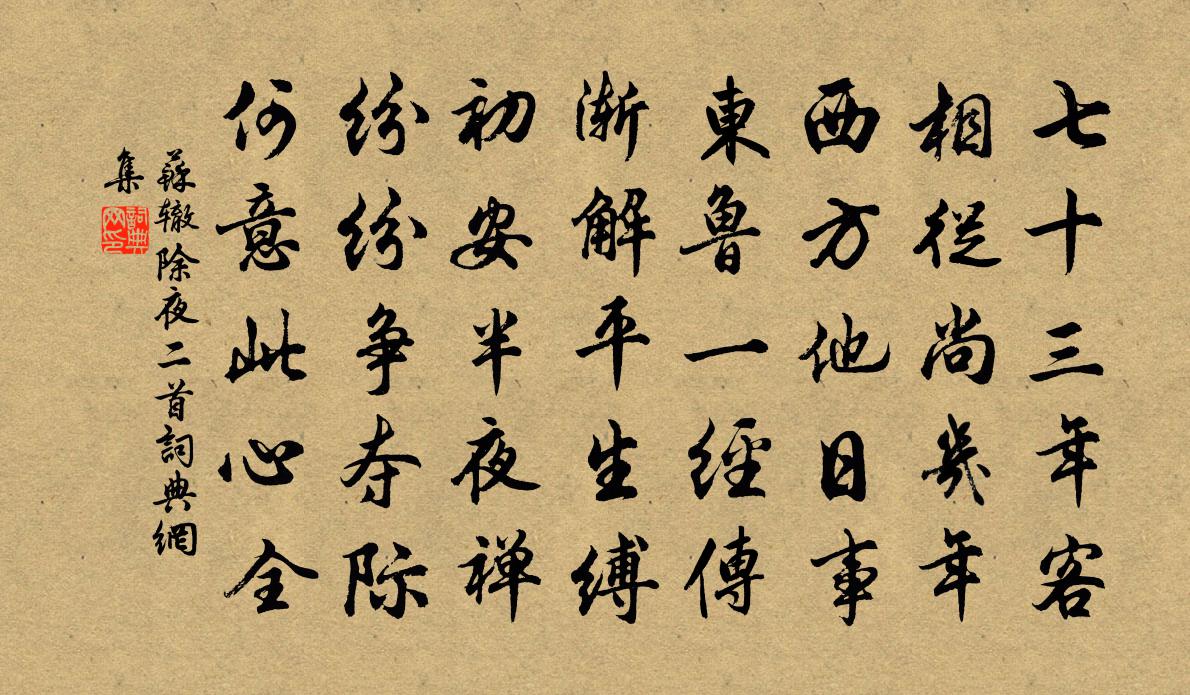 七十三年客
相從尚幾年
西方他日事
東魯一經傳
漸解平生縛
初安半夜禅
紛紛争夺际
何意此心全
蘇辙除夜二首詞典網
集
詞典
网印